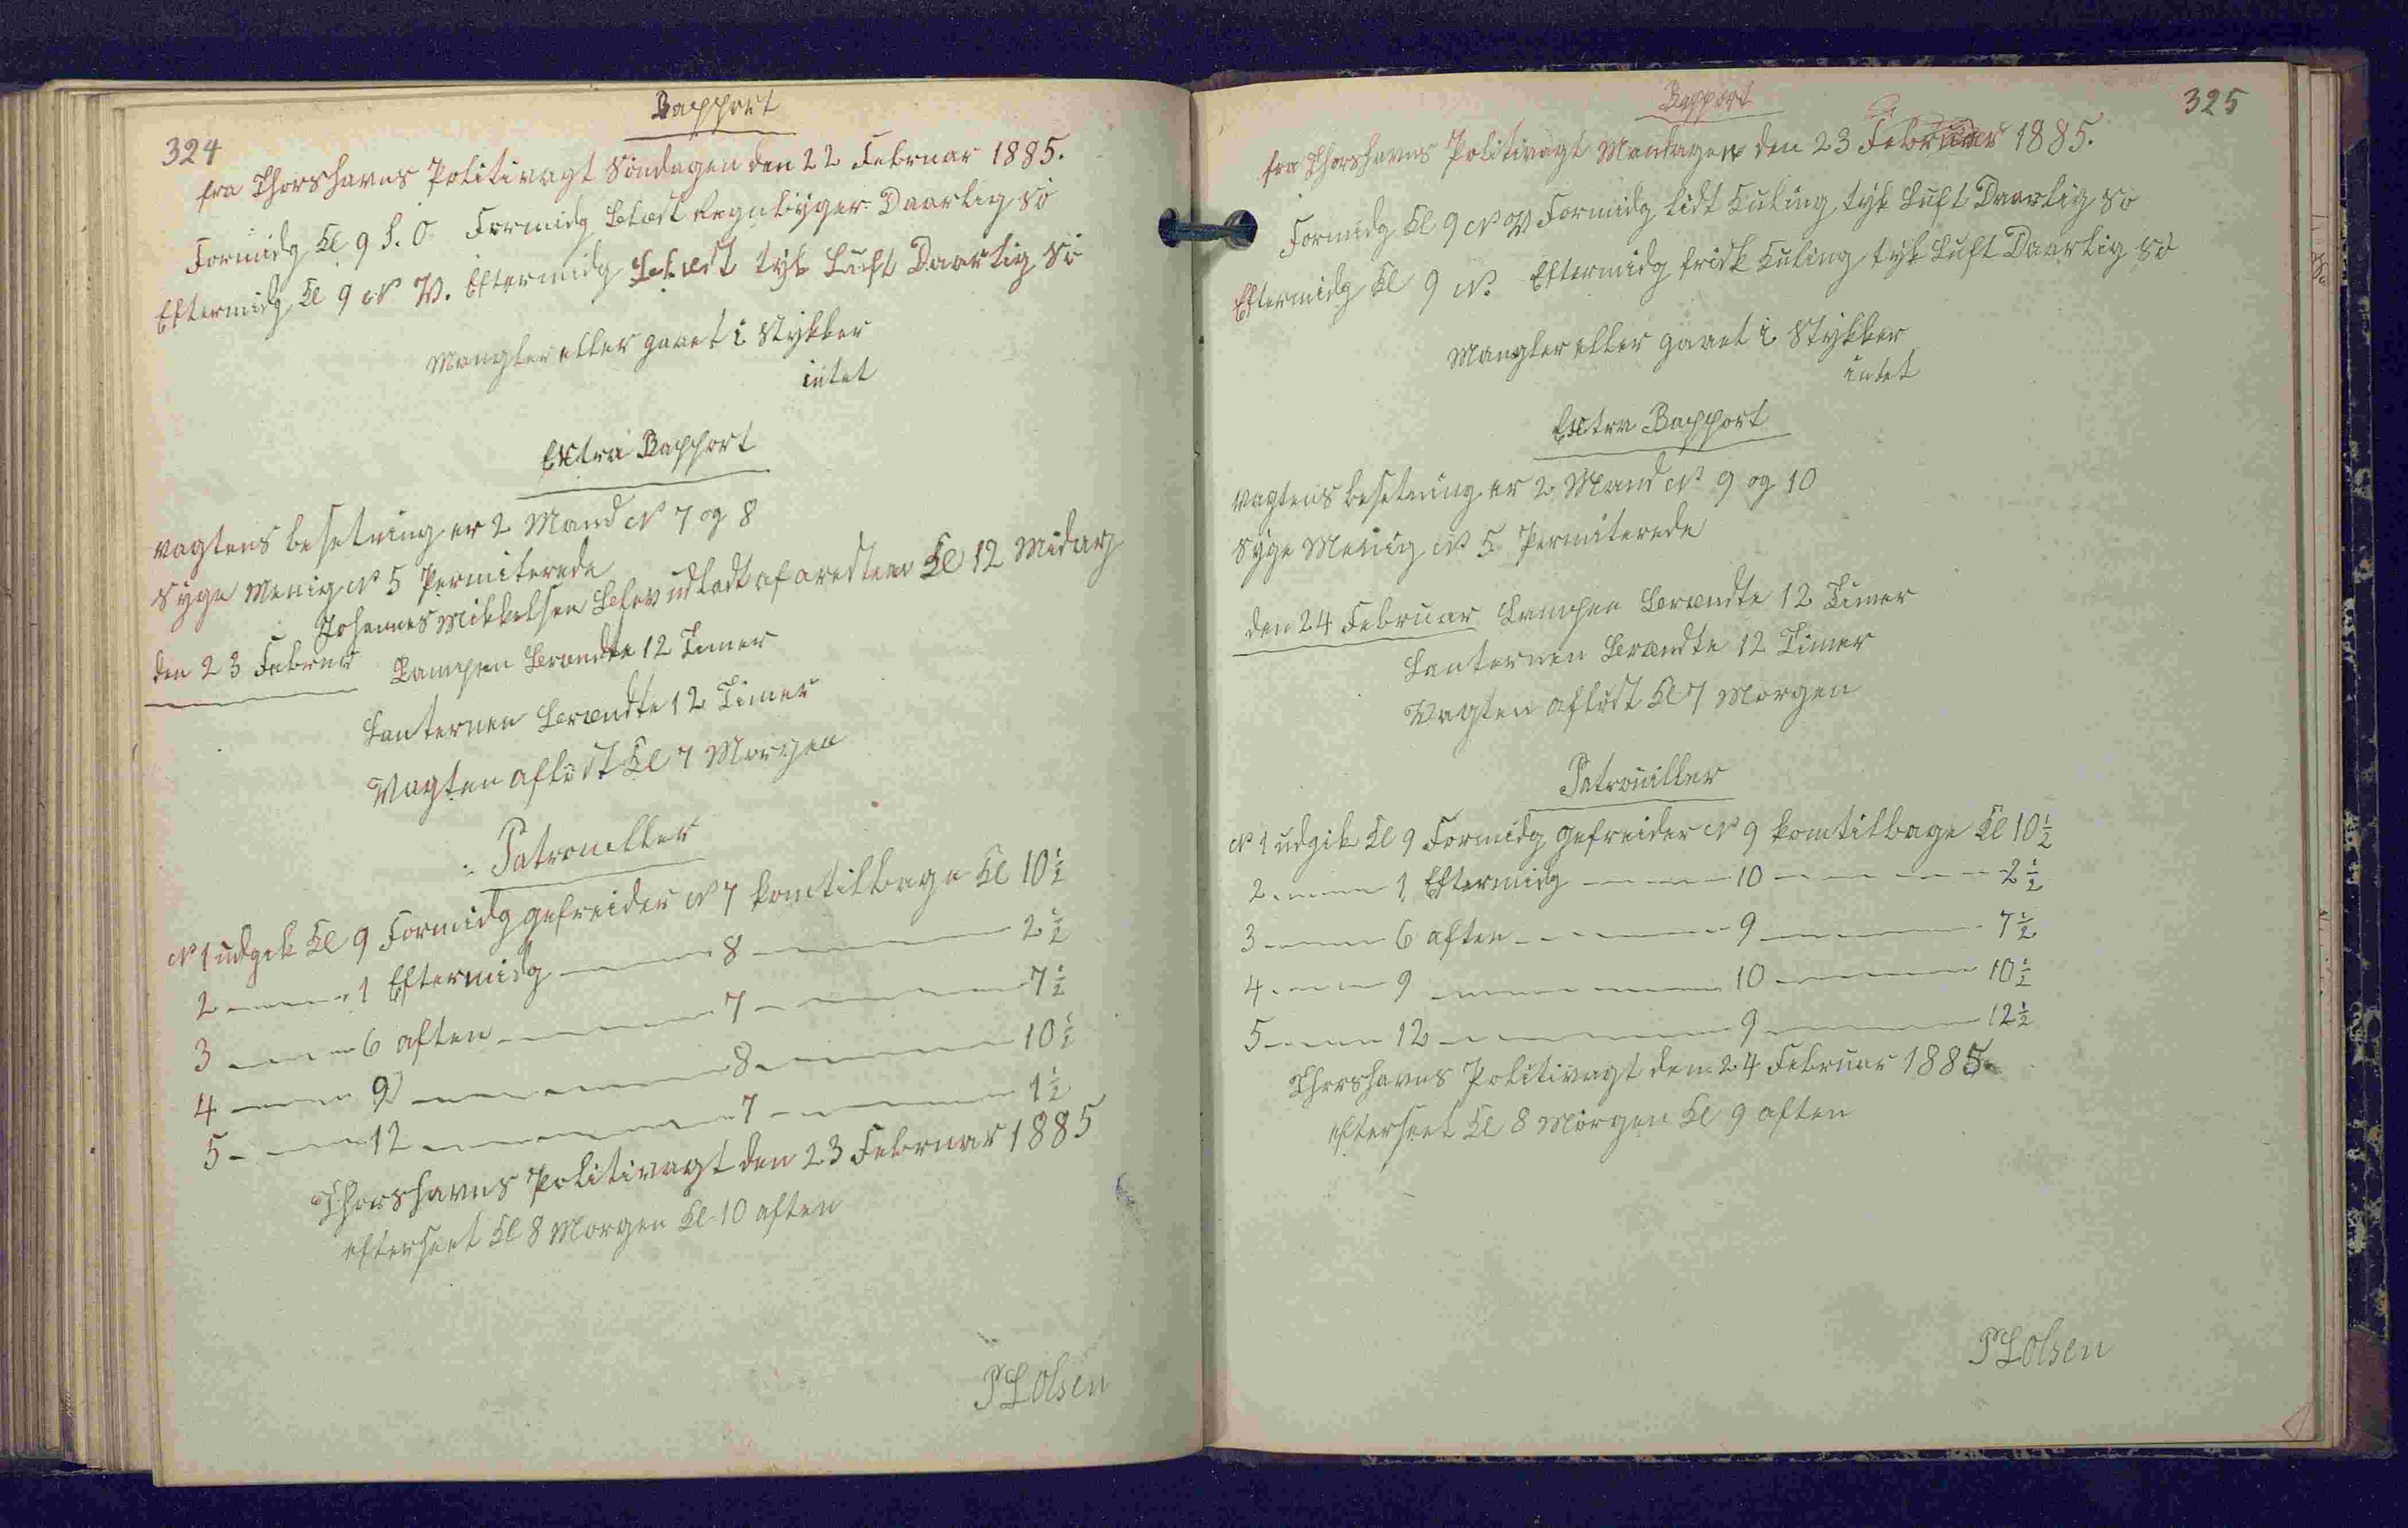 324
Rapport
fra Thorshavns Politivagt Söndagen den 22 Februar 1885.
Formidg Kl 9 S. O. Formidg Blæst Regnbyger Daarlig Sö
Eftermidg Kl 9 N V. Eftermidg Blæst tyk Luft Daarlig Sö
Mangler eller gaaet i Stykker
intet
Extra Rapport
Vagtens besetning er 2 Mand N 7 og 8
Syge Menig N 5 Permiterede
Johannes Mikkelsen Blev udladt af aresten Kl 12 Midag
den 23 Februar Lampen Brændte 12 Timer
Lanternen Brændte 12 Timer
Vagten aflöst Kl 7 Morgen
Patrouiller
N 1 udgik Kl 9 Formidg gefreider N 7 kom tilbage Kl 10 1/2
2 — 1 Eftermidg — 8 — 2 1/2
3 — 6 aften — 7 — 7 1/2
4 — 9 — 8 — 10 1/2
5 — 12 — 7 — 1 1/2
Thorshavns Politivagt den 23 Februar 1885
efterseet Kl 8 Morgen Kl 10 aften
P L Olsen
325
Rapport
fra Thorshavns Politivagt Mandagen den 23 Februar 1885.
Formidg Kl 9 N V Formidg lidt Kuling tyk Luft Daarlig Sö
Eftermidg Kl 9 N. Eftermidg frisk Kuling tyk Luft Daarlig Sö
Mangler eller gaaet i Stykker
intet
Extra Rapport
Vagtens besetning er 2 Mand N 9 og 10
Syge Menig N 5 Permiterede
den 24 Februar Lampen Brændte 12 Timer
Lanternen Brændte 12 Timer
Vagten aflöst Kl 7 Morgen
Patrouiller
N 1 udgik Kl 9 Formidg gefreider N 9 kom tilbage Kl 10 1/2
2 — 1 Eftermidg — 10 — 2 1/2
3 — 6 aften — 9 — 7 1/2
4 — 9 — 10 — 10 1/2
5 — 12 — 9 — 12 1/2
Thorshavns Politivagt den 24 Februar 1885
efterseet Kl 8 Morgen Kl 9 aften
P L Olsen